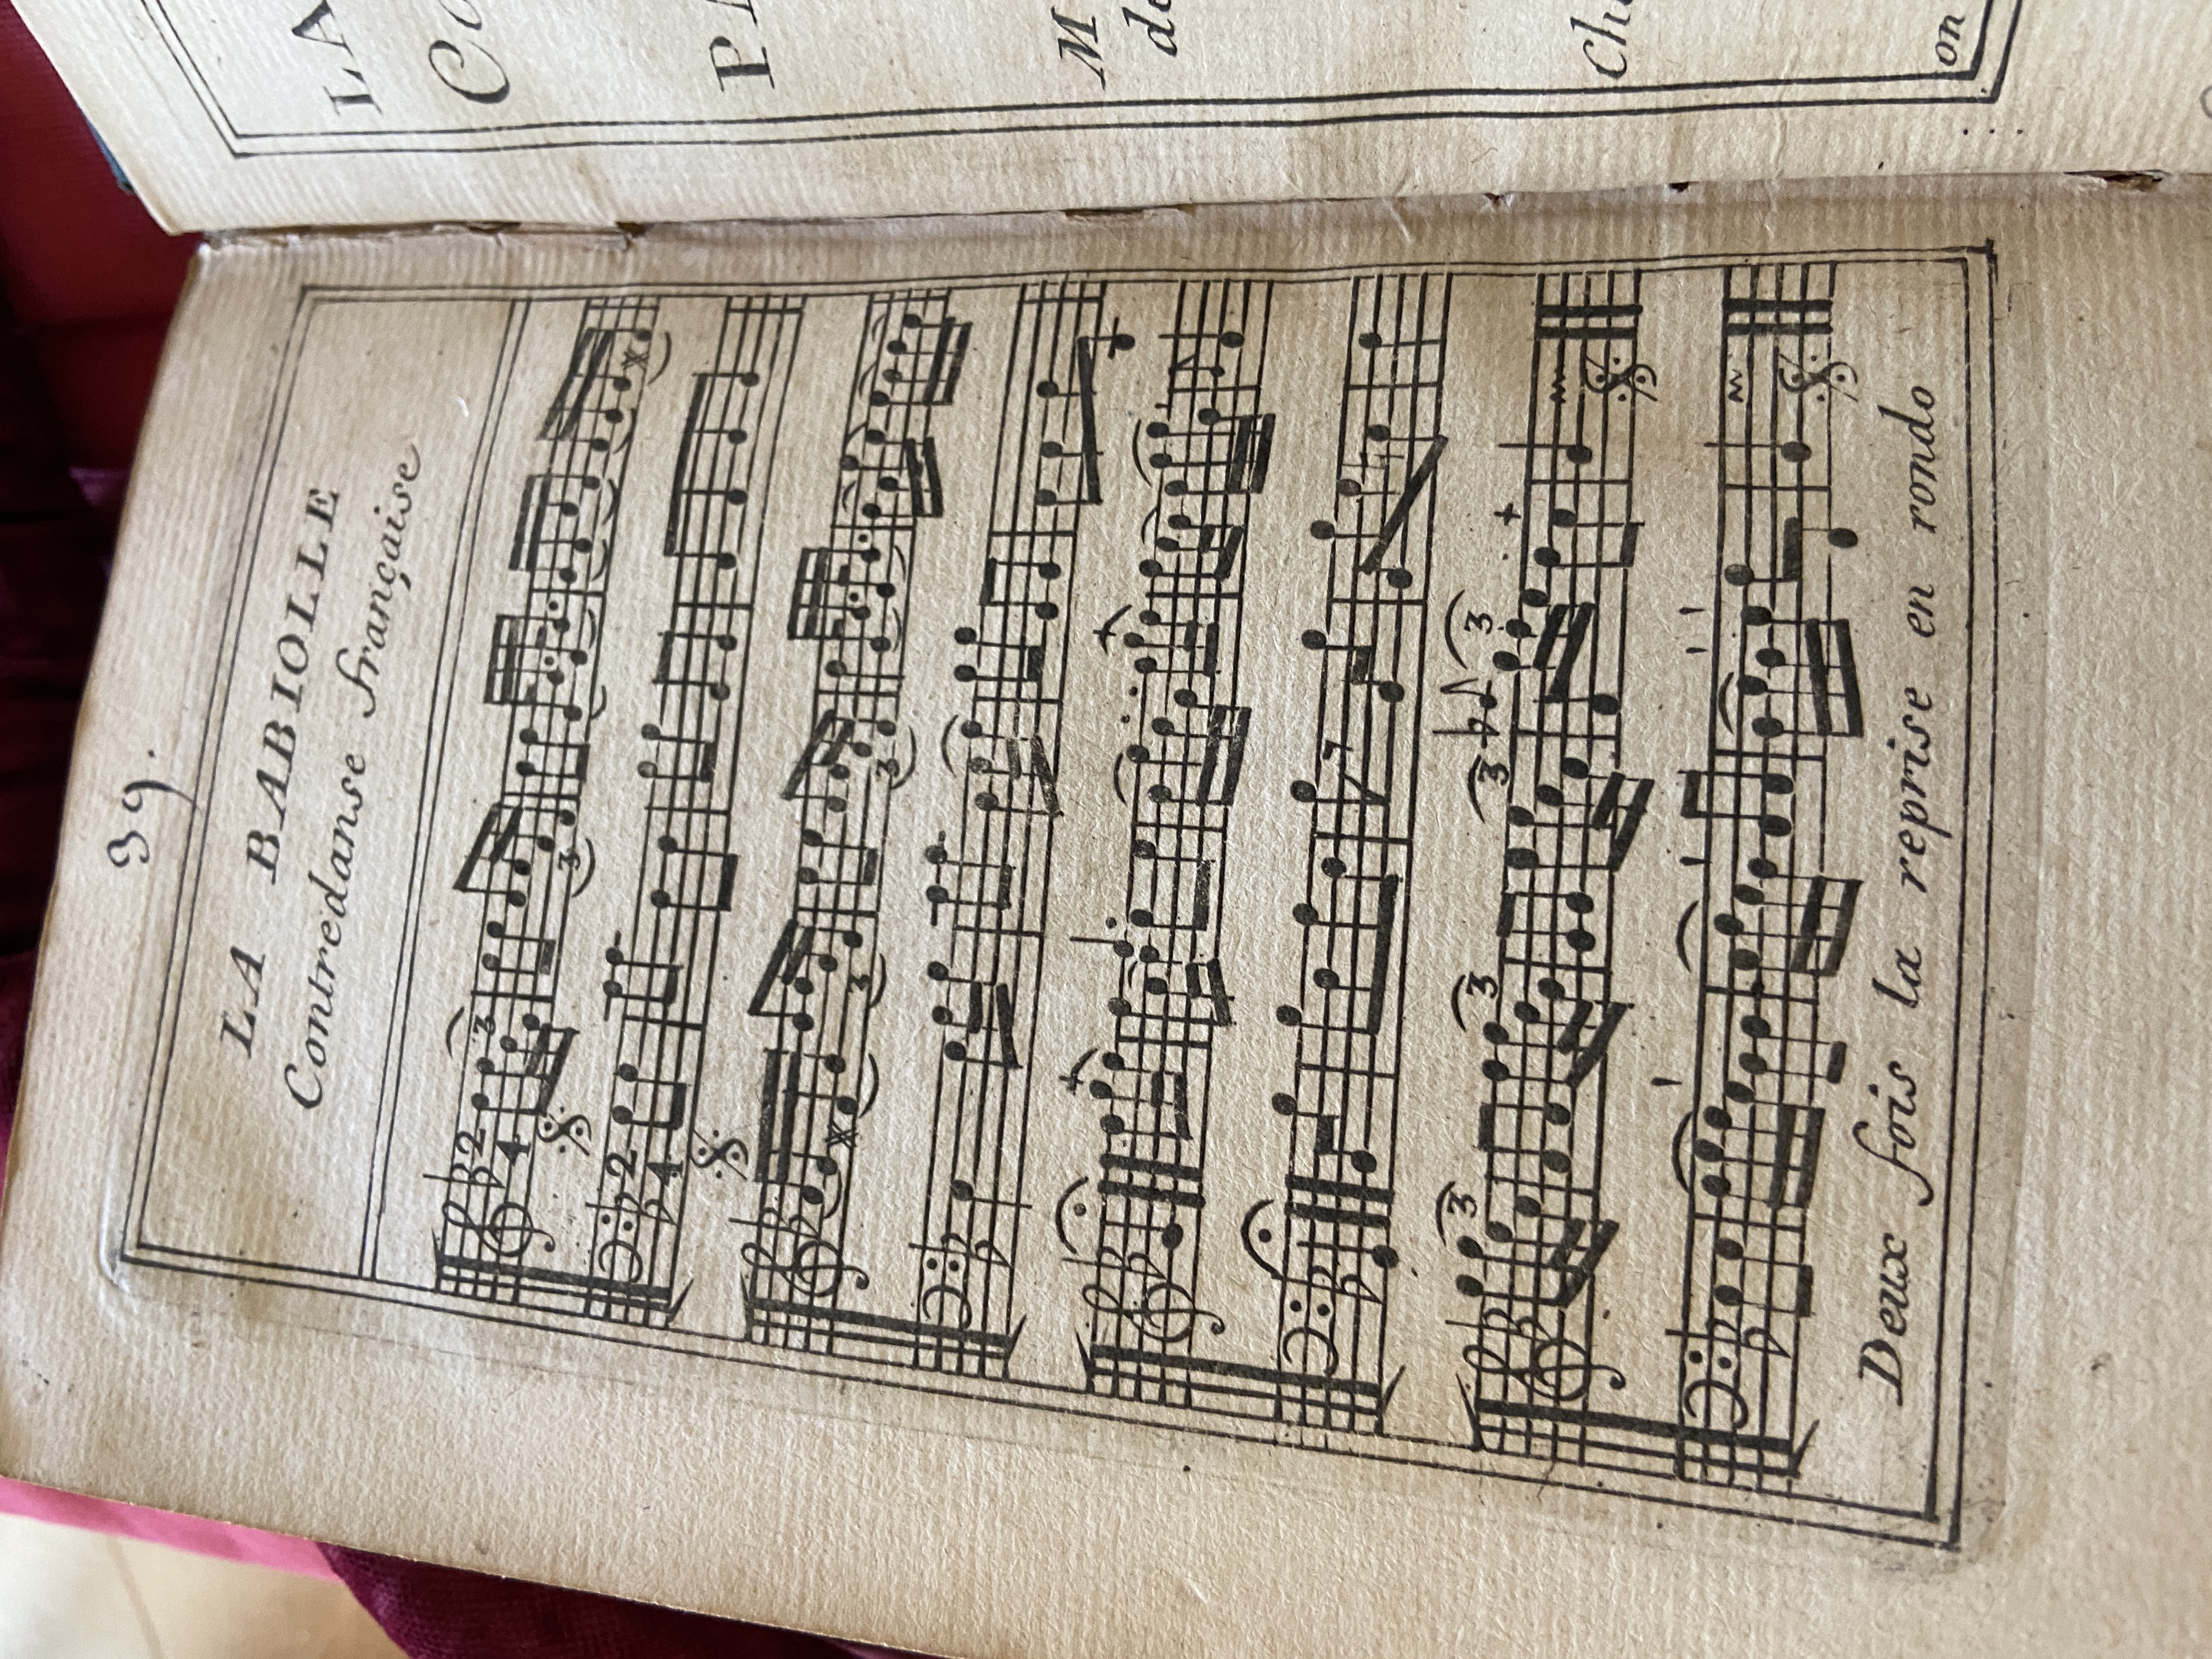 39.
LA BABIOLLE
Contredanse française
2
4
3
3
2
4
3
3
3
3
3
3
Deux fois la reprise en rondo
LA
Co
PA
M
de
Ch
on